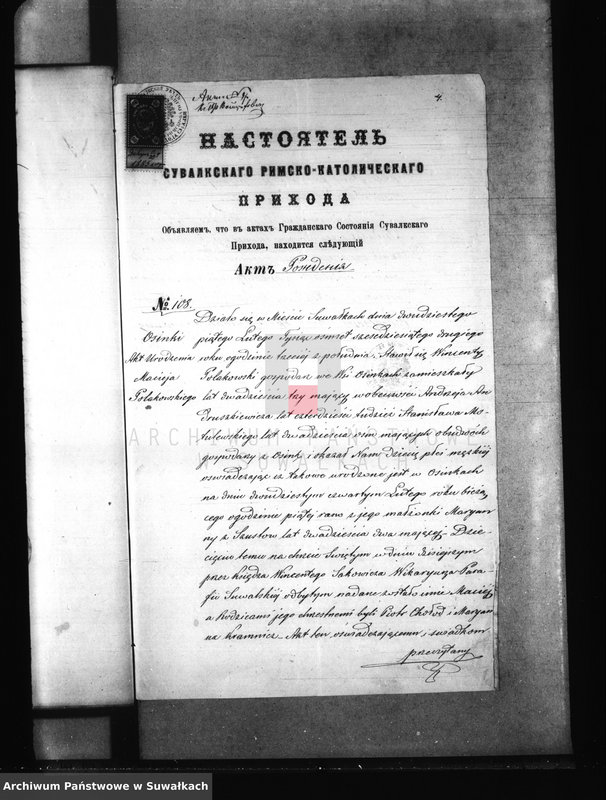 4.
НАСТОЯТЕЛЬ
СУВАЛКСКАГО РИМСКО-КАТОЛИЧЕСКАГО
ПРИХОДА
Объявляемъ, что въ актахъ Гражданскаго Состоянія Сувалкскаго
Прихода, находится слѣдующій
Актъ Рожденія
№ 108.
Osinki
Akt Urodzenia
Macieja
Polakowskiego
Działo się w Mieście Suwałkach dnia dwudziestego
piątego Lutego Tysiąc ośmset sześćdziesiątego drugiego
roku o godzinie trzeciej z południa. Stawił się Wincenty
Polakowski gospodarz we Wsi Osinkach zamieszkały
lat dwadzieścia trzy mający w obecności Andrzeja An
druszkiewicza lat czterdzieści tudzież Stanisława Ma
tulewskiego lat dwadzieścia ośm mających obudwóch
gospodarzy z Osink i okazał Nam dziecię płci męzkiej
oświadczając iż takowe urodzone jest w Osinkach
na dniu dwudziestym czwartym Lutego roku bieżą
cego o godzinie piątej rano z jego małżonki Maryan
ny z Szustow lat dwadzieścia dwa mającej. Dzie-
cięciu temu na chrzcie Świętym w dniu dzisiejszym
przez księdza Wincentego Sakowicza Wikaryusza Para-
fii Suwalskiej odbytym nadane zostało imie Maciej
a Rodzicami jego chrzestnemi byli Piotr Chołod i Maryan
na Kramnicz. Akt ten oświadczającemu i świadkom
przeczytany
ARCHIWUM PAŃSTWOWE
W SUWAŁKACH
Archiwum Państwowe w Suwałkach